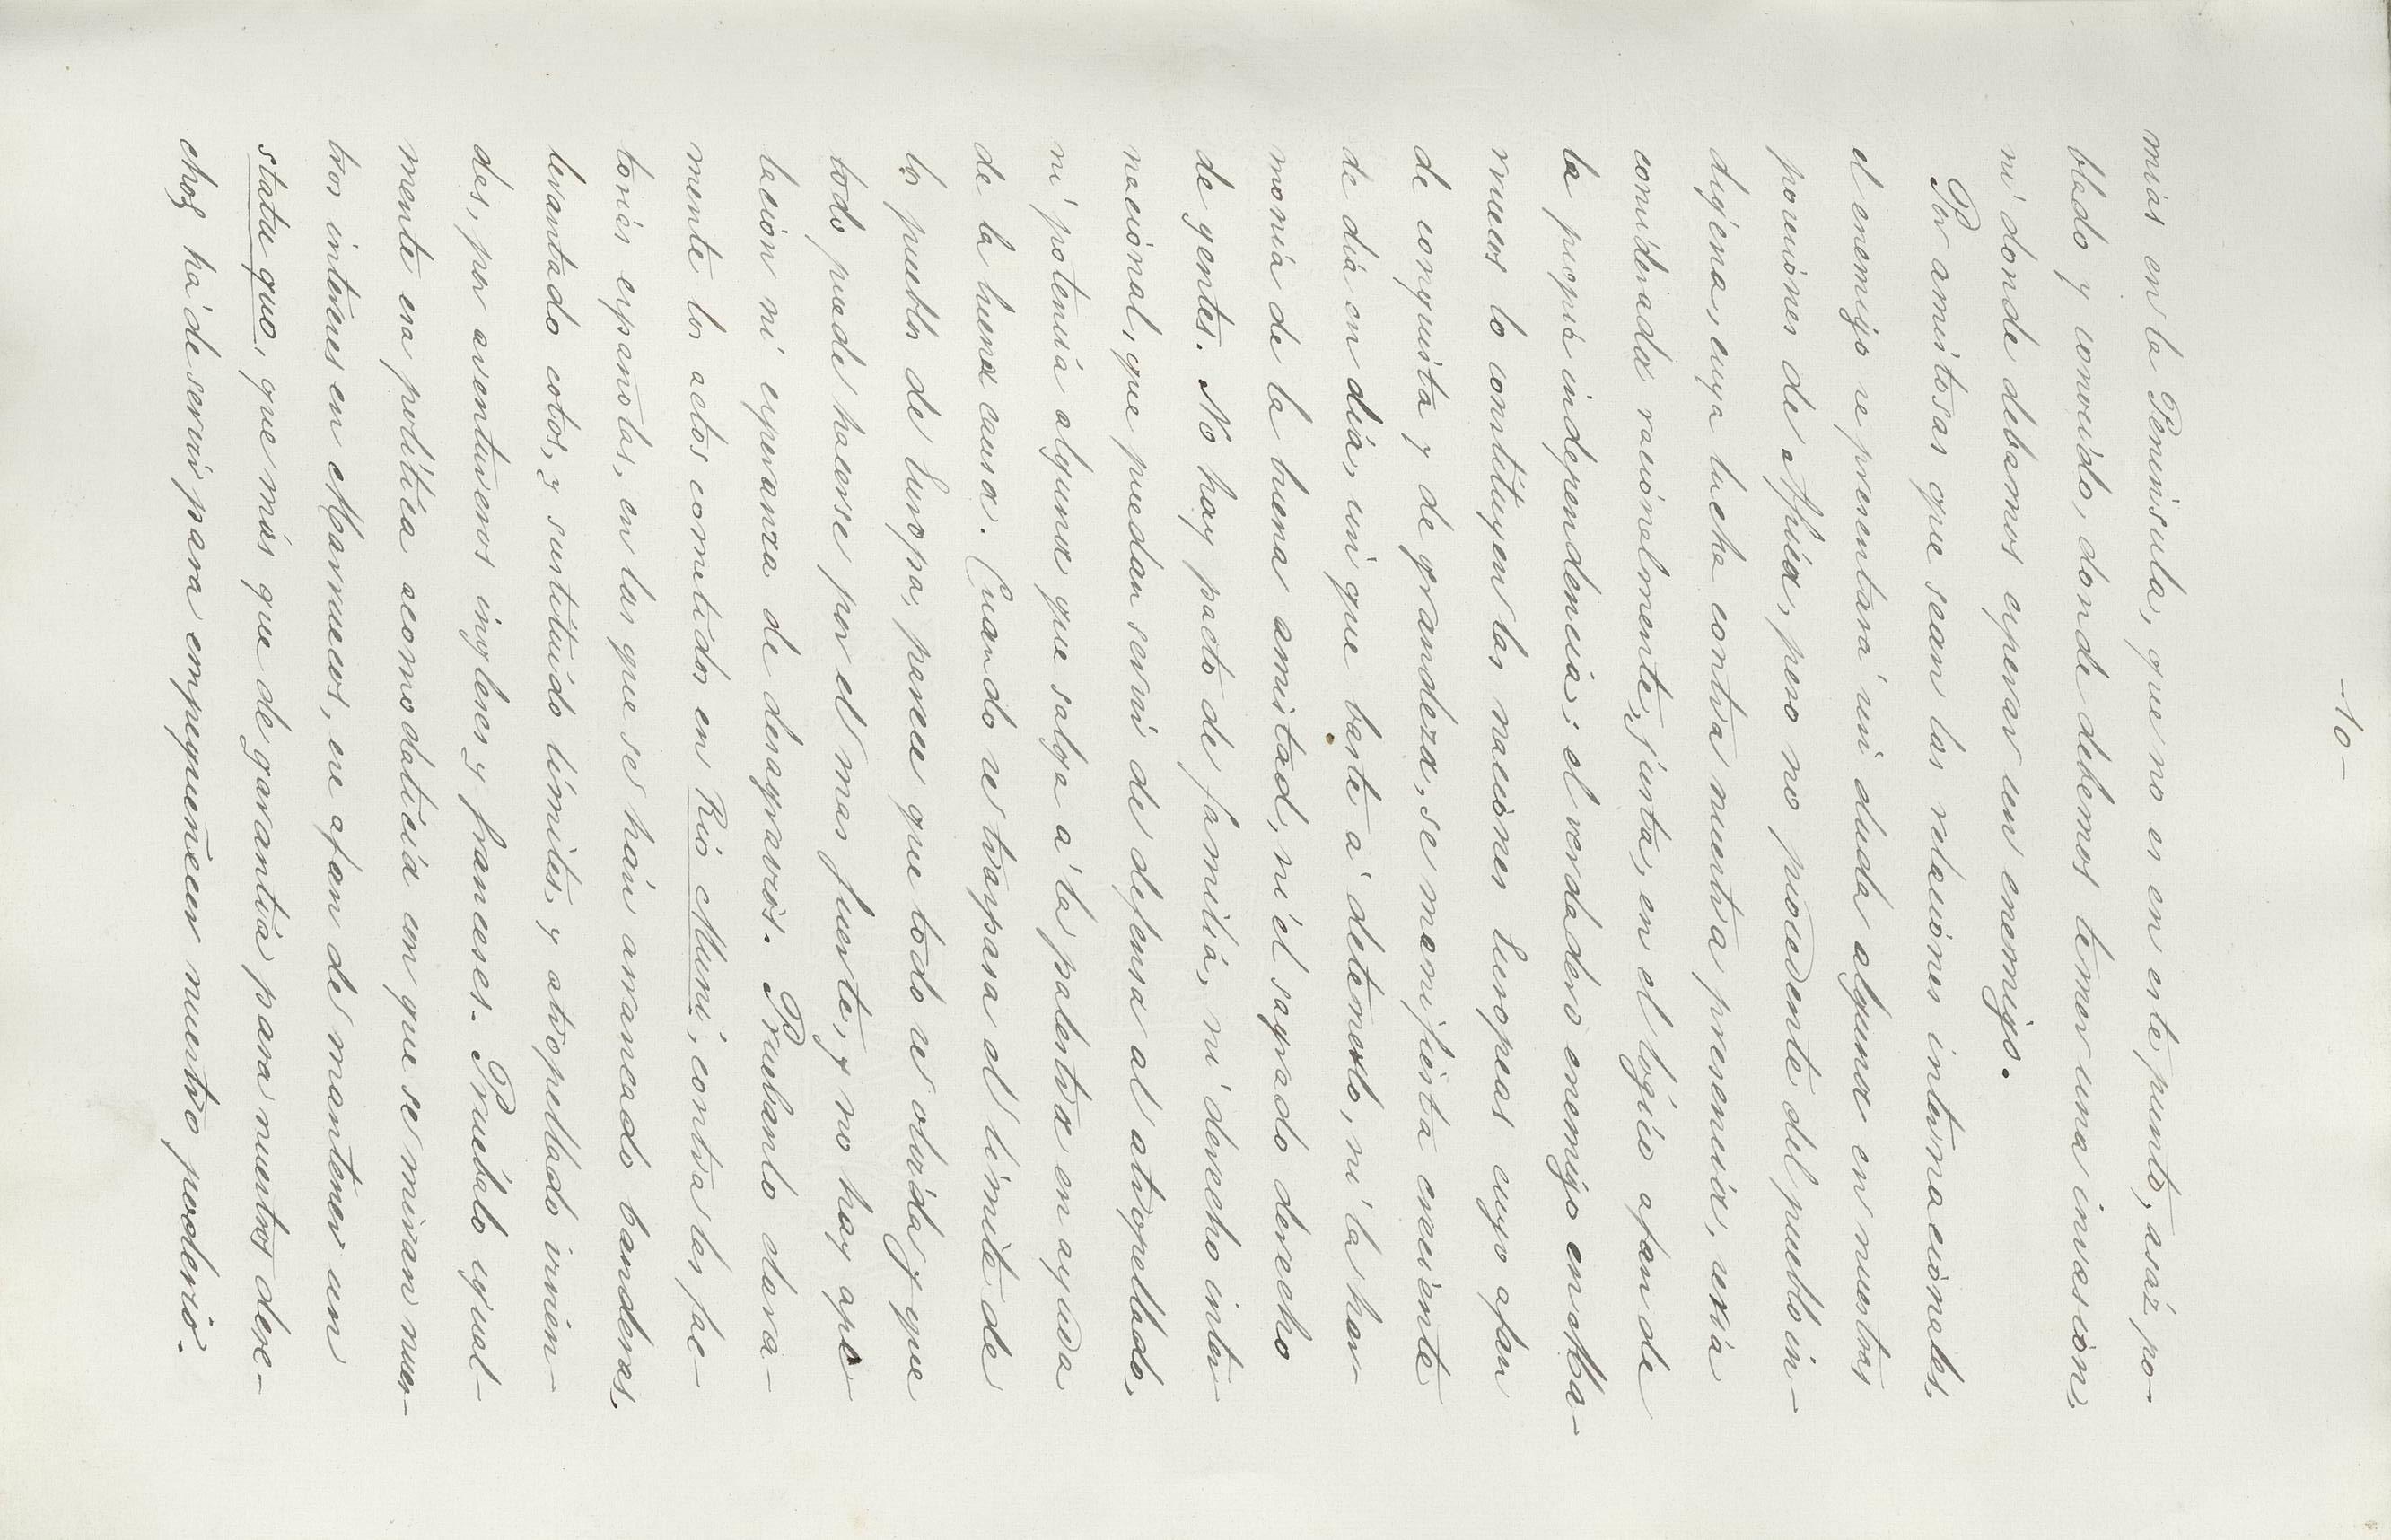 -10-
mías en la Península, que no es en este punto, asaz po-
blado y conocido, donde debemos temer una invasion,
ni donde debamos esperar un enemigo.
Por amistosas que sean las relaciones internacionales,
el enemigo se presentará sin duda alguna en nuestras
posesiones de Africa, pero no procedente del pueblo in-
dígena, cuya lucha contra nuestra presencia, sería
considerada racionalmente, justa, en el lógico afan de
la propia independencia; el verdadero enemigo en Ma-
rruecos lo constituyen las naciones Europeas cuyo afan
de conquista y de grandeza, se manifiesta creciente
de dia en dia, sin que baste á detenerlo, ni la har-
monía de la buena amistad, ni el sagrado derecho
de gentes. No hay pacto de familia, ni derecho inter-
nacional, que puedan servir de defensa al atropellado,
ni potencia alguna que salga á la palestra en ayuda
de la buena causa. Cuando se traspasa el límite de
los pueblos de Europa, parece que todo se olvida y que
todo puede hacerse por el mas fuerte, y no hay ape-
lacion ni esperanza de desagravios. Pruebanlo clara-
mente los actos cometidos en Rio Muni, contra las fac-
torias españolas, en las que se han arrancado banderas,
levantado cotos, y sustituido límites, y atropellado vivien-
das, por aventureros ingleses y franceses. Pruébalo igual-
mente esa política acomodaticia con que se miran nues-
tros intereses en Marruecos, en afan de mantener un
statu quo, que más que de garantia para nuestros dere-
chos há de servir para empequeñecer nuestro poderio.